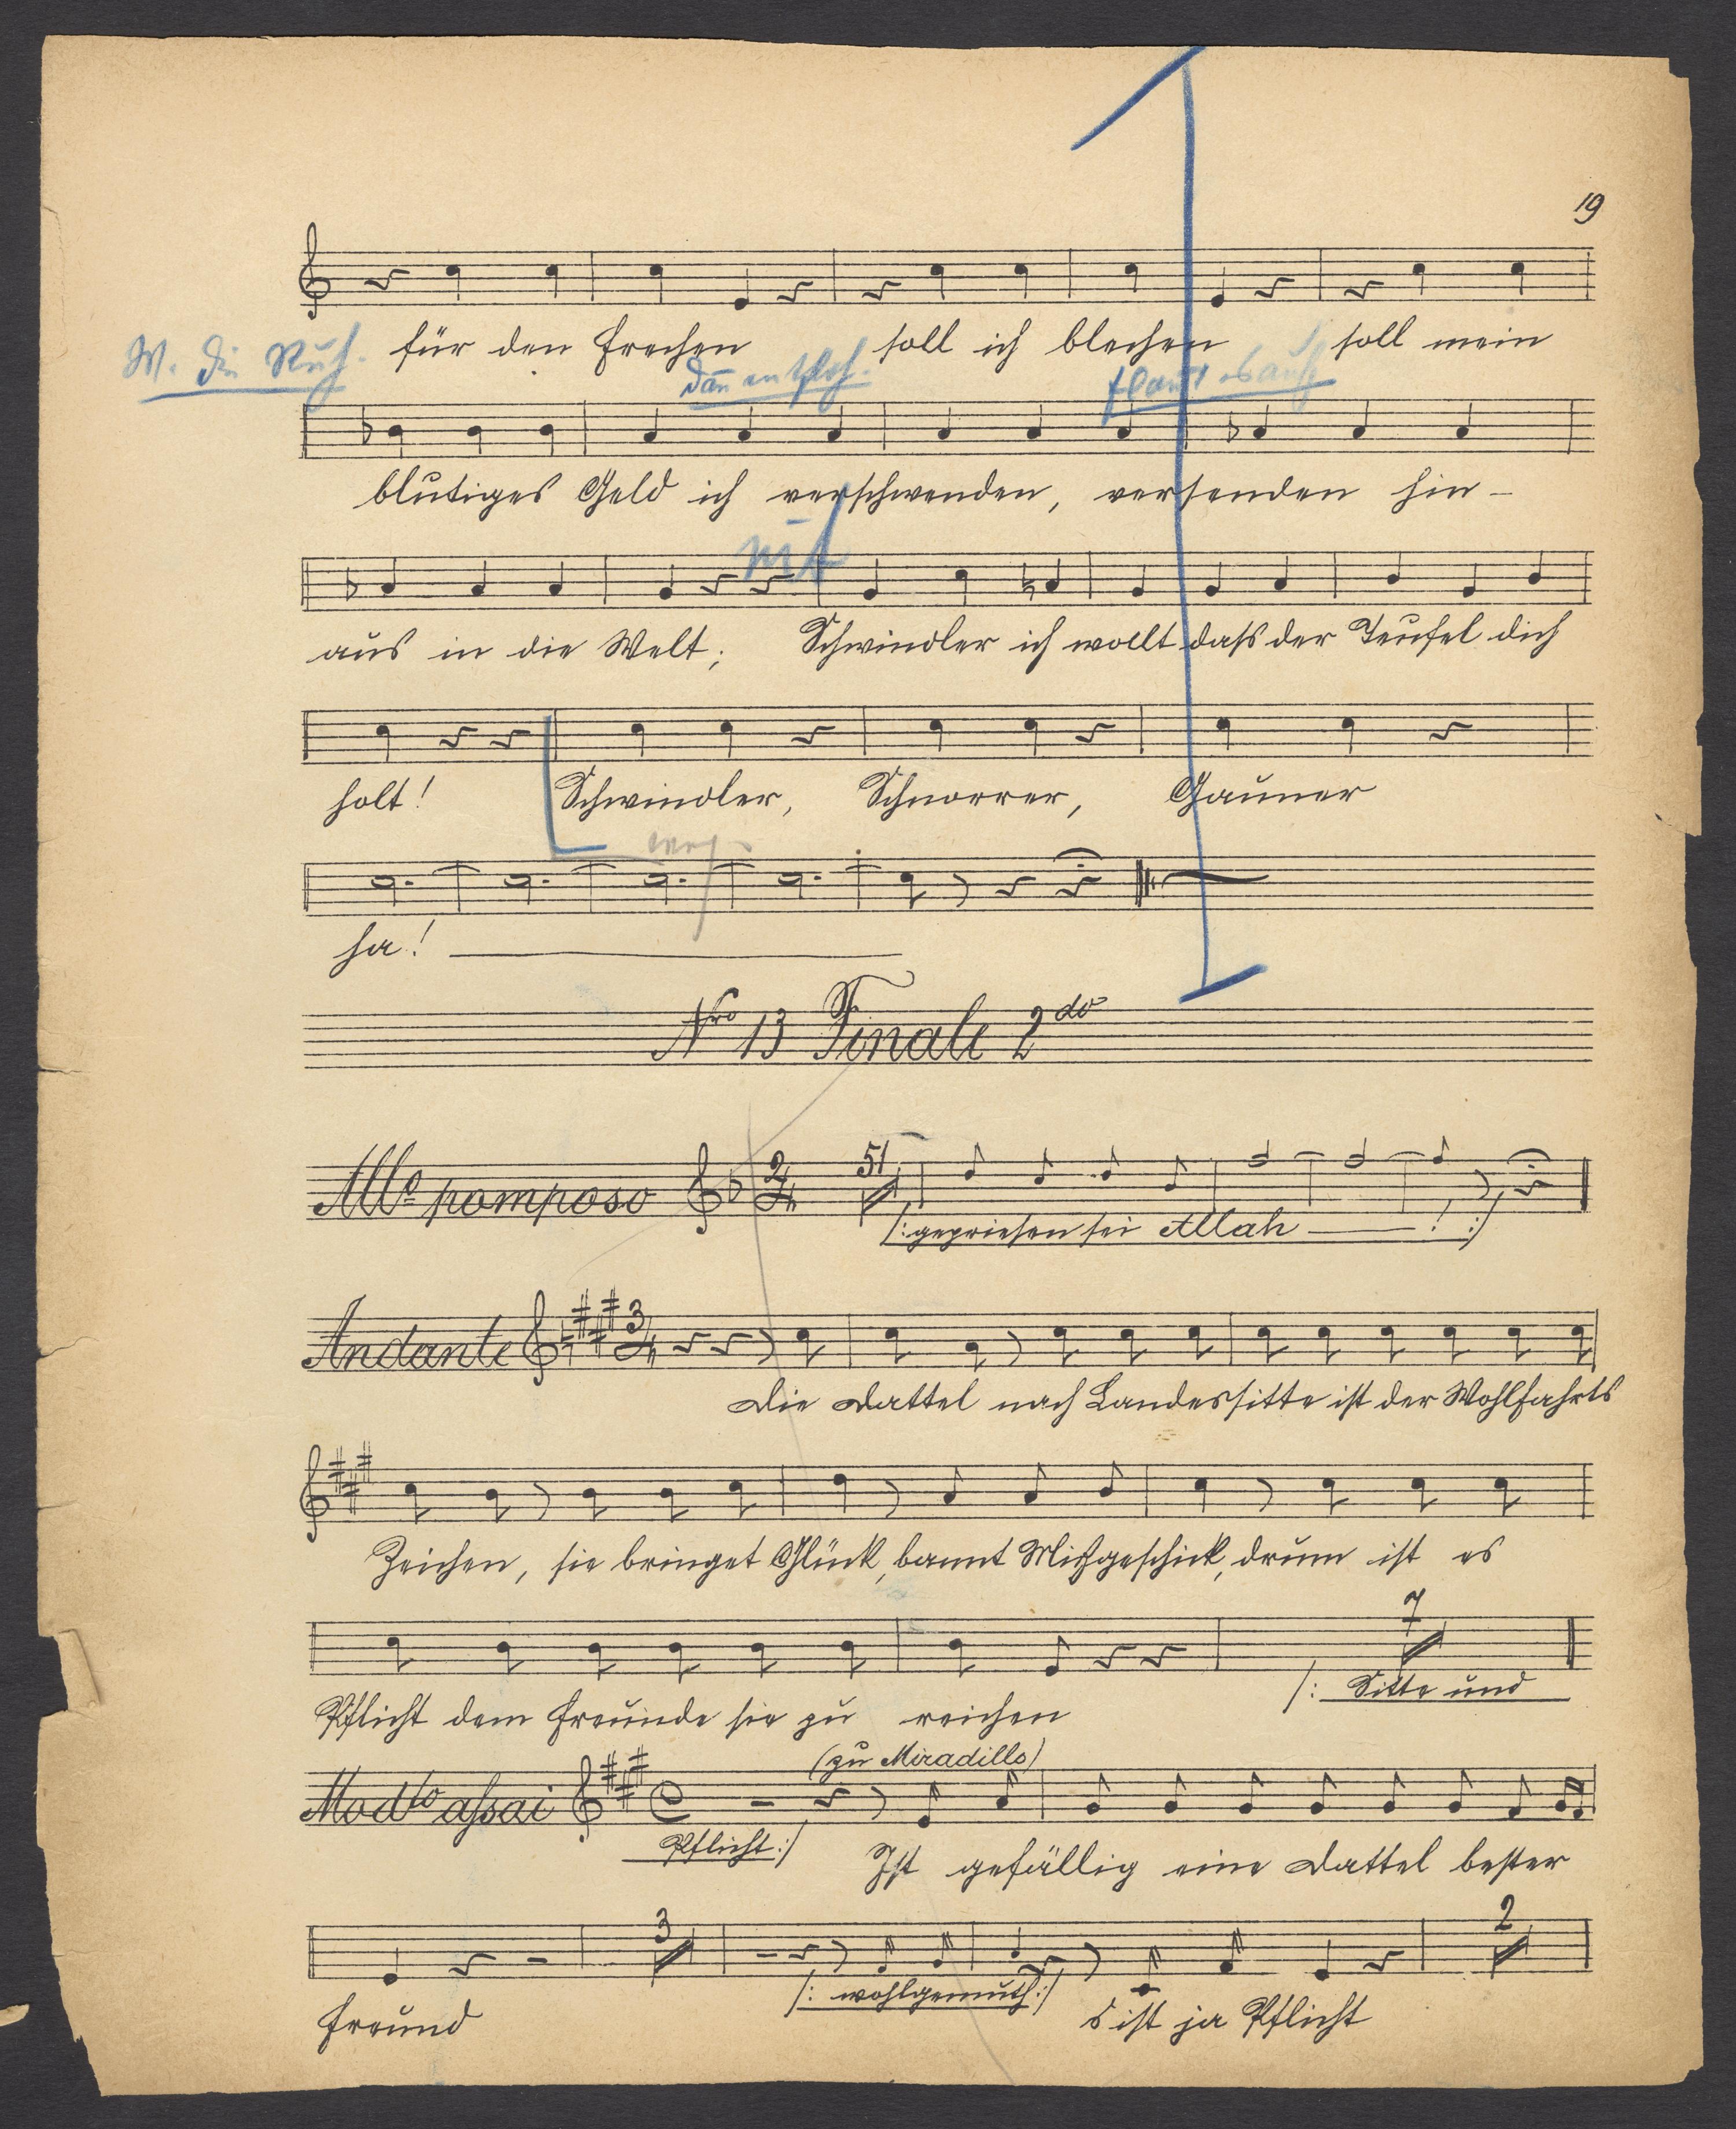 19
für den frechen soll ich blechen soll mein
W. die Ruh.
blutiges Geld ich verschwenden, versenden hin-
aus in die Welt; Schwindler ich wollt dass der Teufel dich
holt! Schwindler, Schnorrer, Gauner
weg
ha!
Nro 13 Finale 2do
Allo pomposo 2/4 51
/: gepriesen sei Allah ! :/
Andante 3/4
die Dattel nach Landessitte ist der Wohlfahrts
Zeichen, sie bringet Glück, bannt Mißgeschick, drum ist es
7
Pflicht dem Freunde sie zu reichen /: Sitte und
(zu Miradillo)
Modto assai C
Pflicht :/ Ist gefällig eine Dattel bester
3 2
/: wohlgemuth :/
Freund s ist ja Pflicht